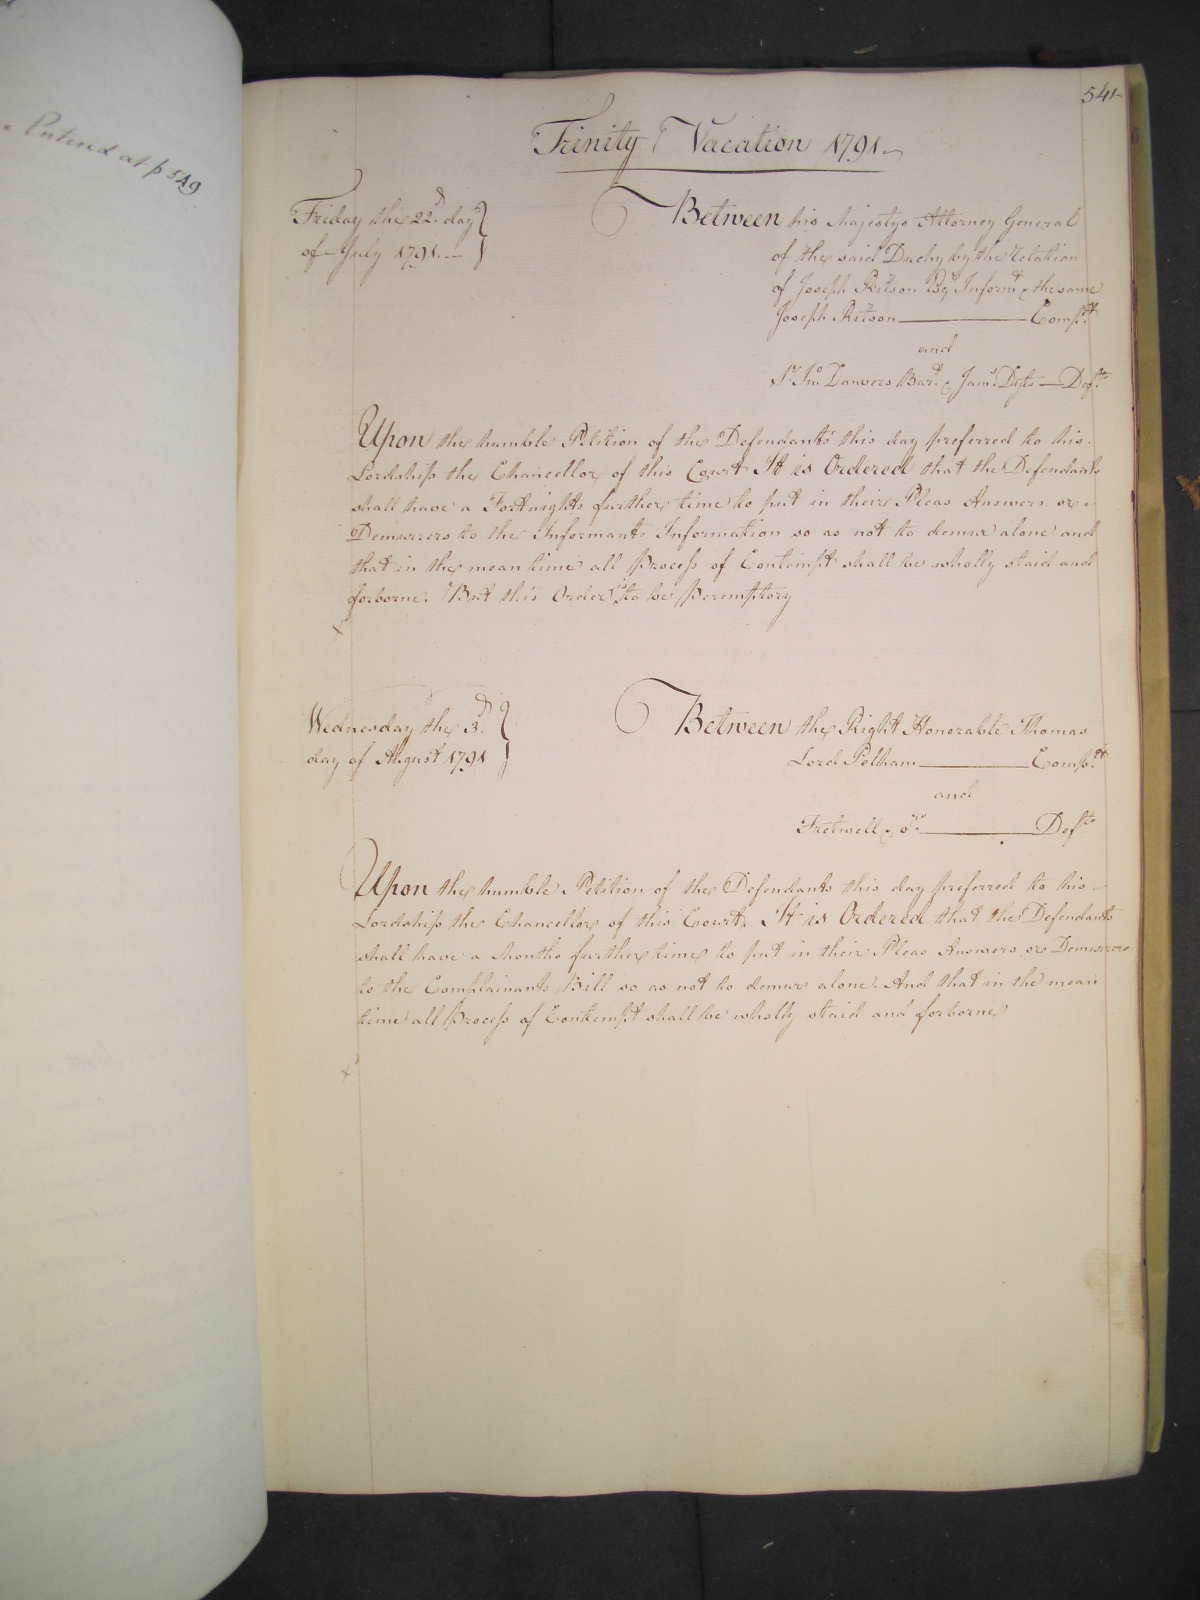 Entered at p 549
541
Trinity Vacation 1791
Friday the 22.d day
of July 1791
Between his Majestys Attorney General
of the said Duchy by the Relation
of Joseph Ritson Esqr Informt & the same
Joseph Ritson Complt
and
Sr Jno Danvers Bart. & Jams. Defts
Upon the humble Petition of the Defendants this day preferred to his
Lordship the Chancellor of this Court It is Ordered that the Defendants
shall have a Fortnights further time to put in their Pleas Answers or
Demurrers to the Informants Information so as not to demur alone and
that in the mean time all Process of Contempt shall be wholly staid and
forborne. But this Order is to be Peremptory
Wednesday the 3.d
day of August 1791
Between the Right Honorable Thomas
Lord Pelham Complt
and
Fretwell & ors. Defts
Upon the humble Petition of the Defendants this day preferred to his
Lordship the Chancellor of this Court, It is Ordered that the Defendants
shall have a Months further time to put in their Pleas Answers or Demurrers
to the Complainants Bill so as not to demur alone. And that in the mean
time all Process of Contempt shall be wholly staid and forborne